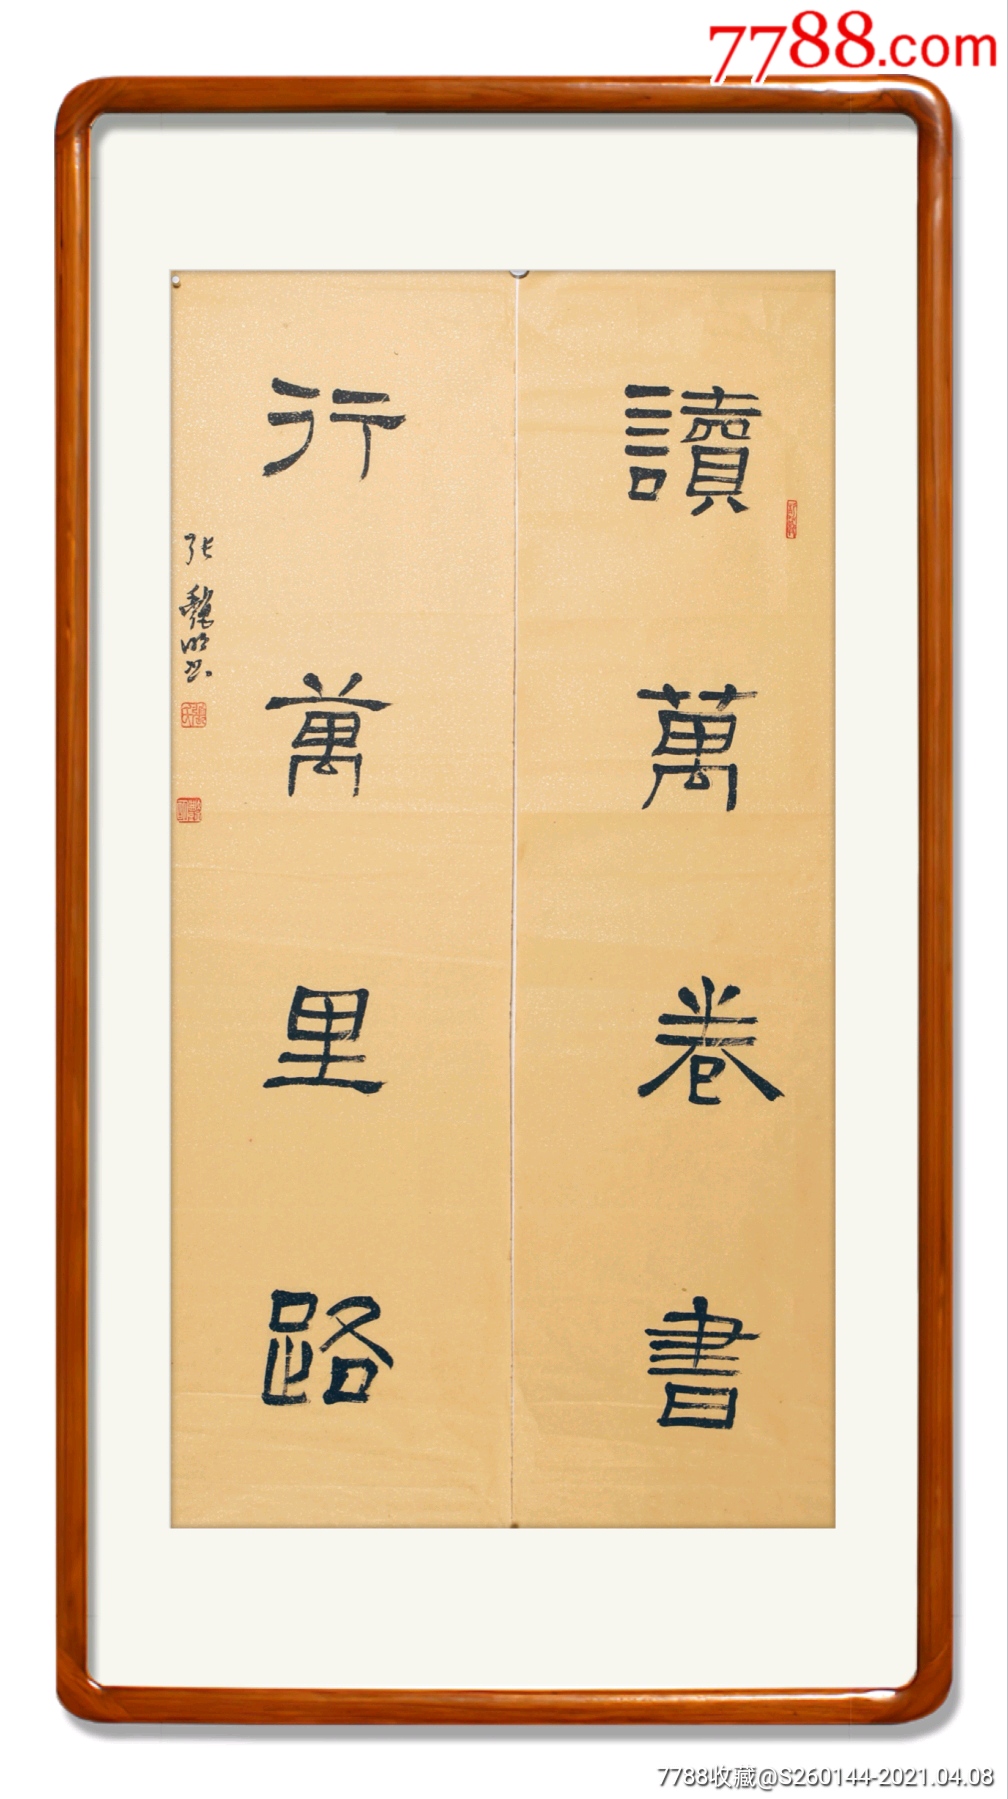 7788.com
讀萬卷書
行萬里路
张魏
7788收藏@S260144-2021.04.08